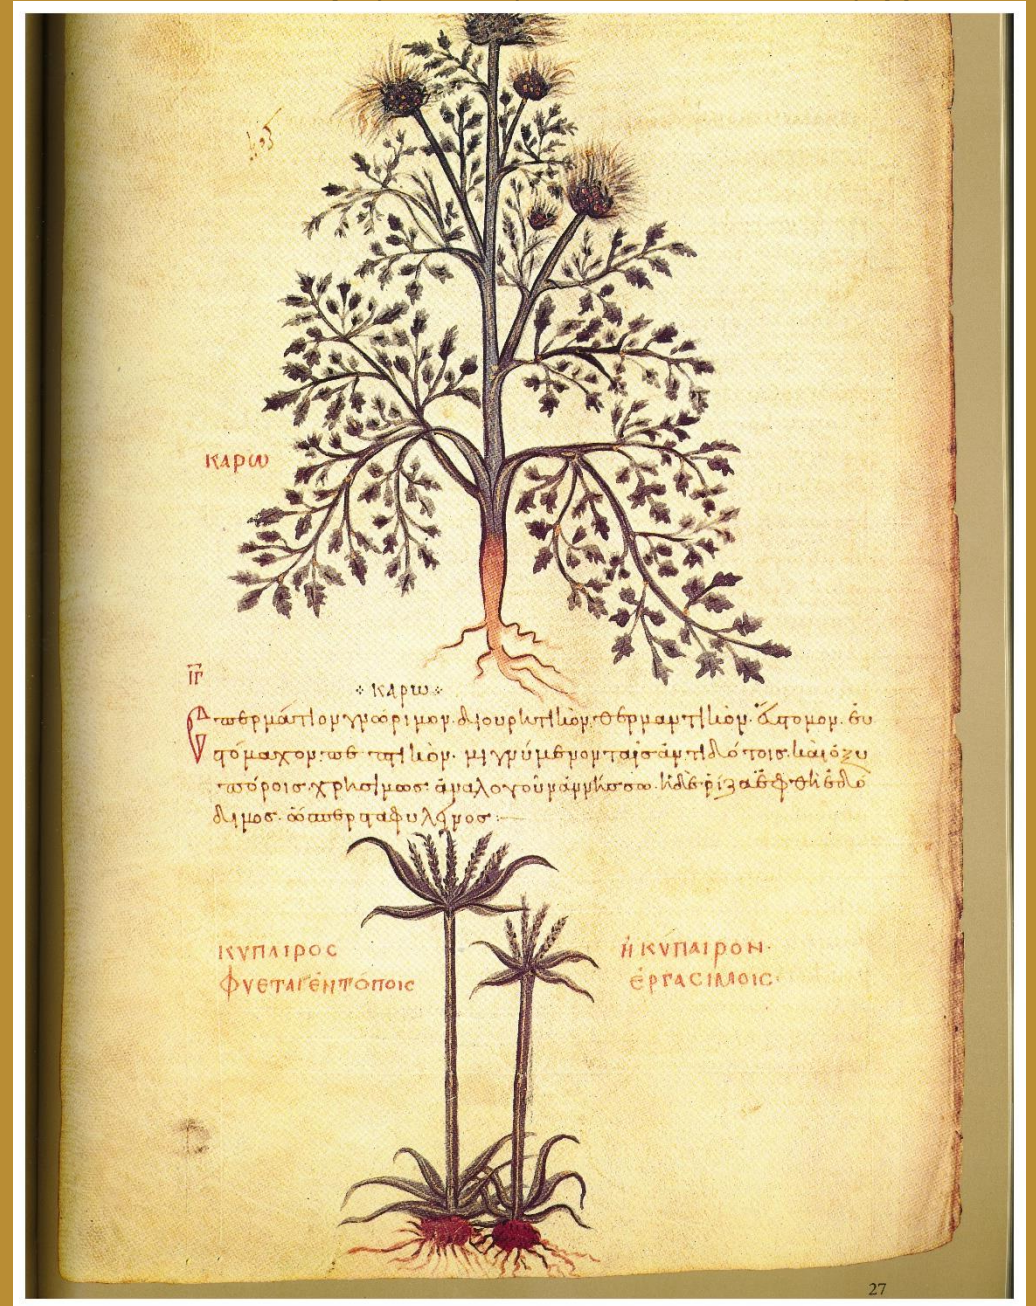 ΚΑΡΩ
ΙΓ
ΚΑΡΩ
σπερμάτιον γνώριμον· διουρητικὸν· θερμαντικὸν· ἄτομον· εὐ
στόμαχον· πεπτικὸν· μιγνύμενον ταῖς ἀντιδότοις· καὶ ὀξυ
πόροις χρησίμως· ἀναλογοῦν ἀννήσσω· ἡ δὲ ρίζα ἑφθὴ ἐδώ
διμος· ὥσπερ σταφυλῖνος
ΚΥΠΑΙΡΟΣ Ἡ ΚΥΠΑΙΡΟΝ·
ΦΥΕΤΑΙ ἘΝ ΤΌΠΟΙΣ ἘΡΓΑΣΙΜΟΙΣ·
27